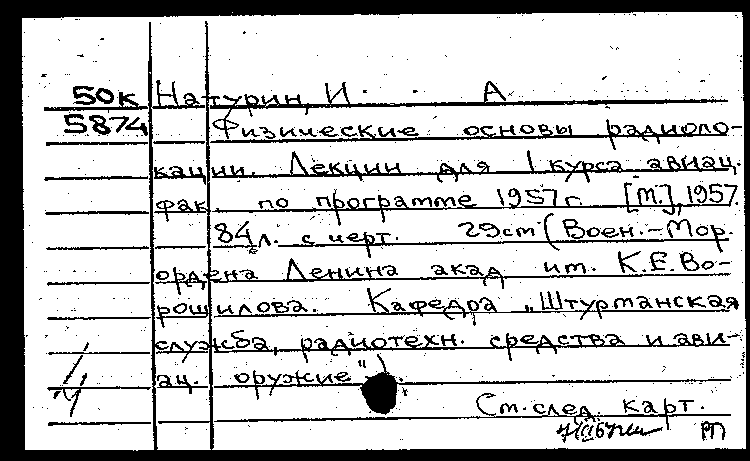 50к Натурин, И. А
5874 Физические основы радиоло-
кации. Лекции для I курса авиац.
фак. по программе 1957 г. [М.], 1957.
84 л. с черт. 29 см (Воен.-Мор.
ордена Ленина акад им. К.Е. Во-
рошилова. Кафедра „Штурманская
служба, радиотехн. средства и ави-
ац. оружие").
См. след. карт.